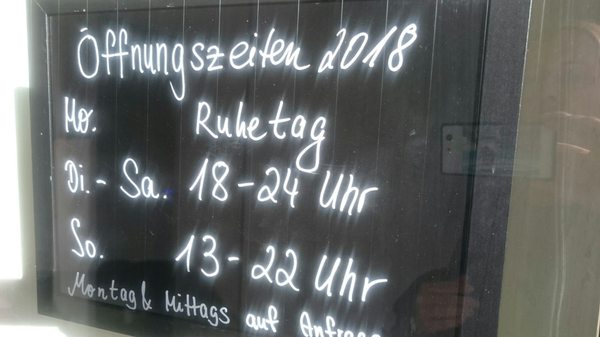 Öffnungszeiten 2018
Mo. Ruhetag
Di.- Sa. 18-24 Uhr
So. 13-22 Uhr
Montag & Mittags auf